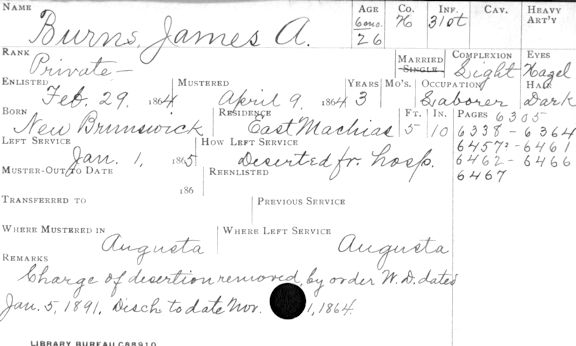 NAME Burns, James A. AGE 26 Co. INF. 31st CAV. HEAVY ART'Y
RANK Private MARRIED SINGLE COMPLEXION Light EYES Hazel
ENLISTED Feb. 29, 1864 MUSTERED April 9, 1864 YEARS 3 MO'S. OCCUPATION Laborer HAIR Dark
BORN New Brunswick RESIDENCE East Machias FT. 5 IN. 10 PAGES 6305
6338 - 6364
6457 - 6461
6462 - 6466
6467
LEFT SERVICE Jan. 1, 1865 HOW LEFT SERVICE Deserted fr. hosp.
MUSTER-OUT TO DATE 186 REENLISTED
TRANSFERRED TO PREVIOUS SERVICE
WHERE MUSTERED IN Augusta WHERE LEFT SERVICE Augusta
REMARKS
Charge of desertion removed, by order W.D. dated
Jan. 5, 1891, Disch to date Nov. 1, 1864
LIBRARY BUREAU C88910